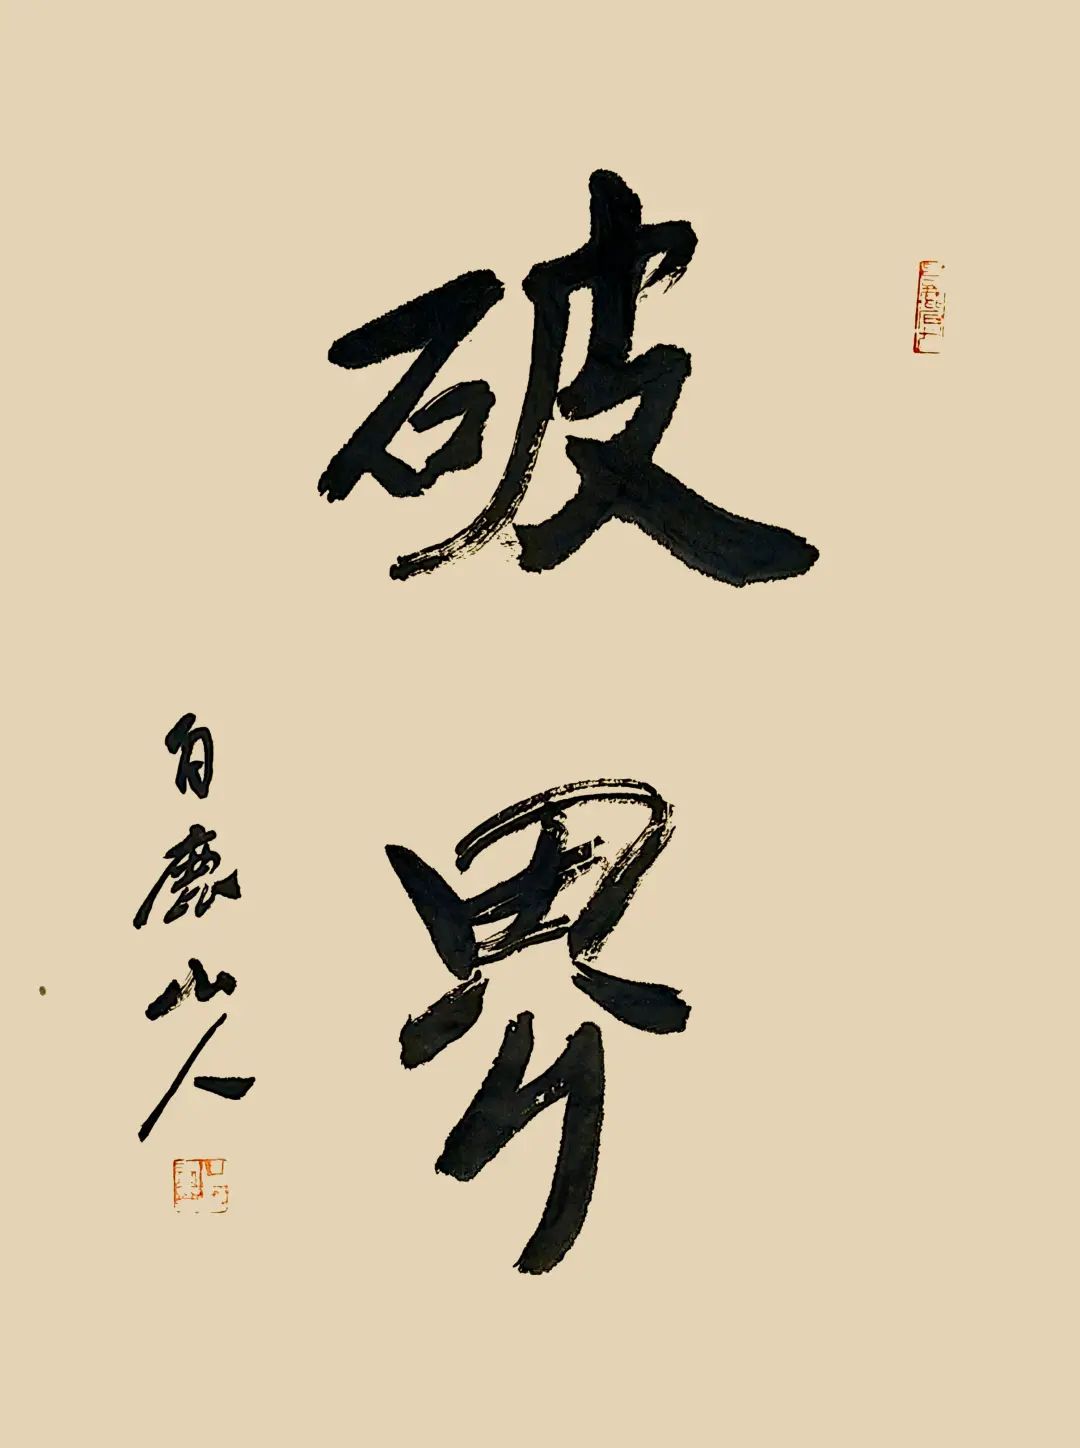 破界
白鹿山人